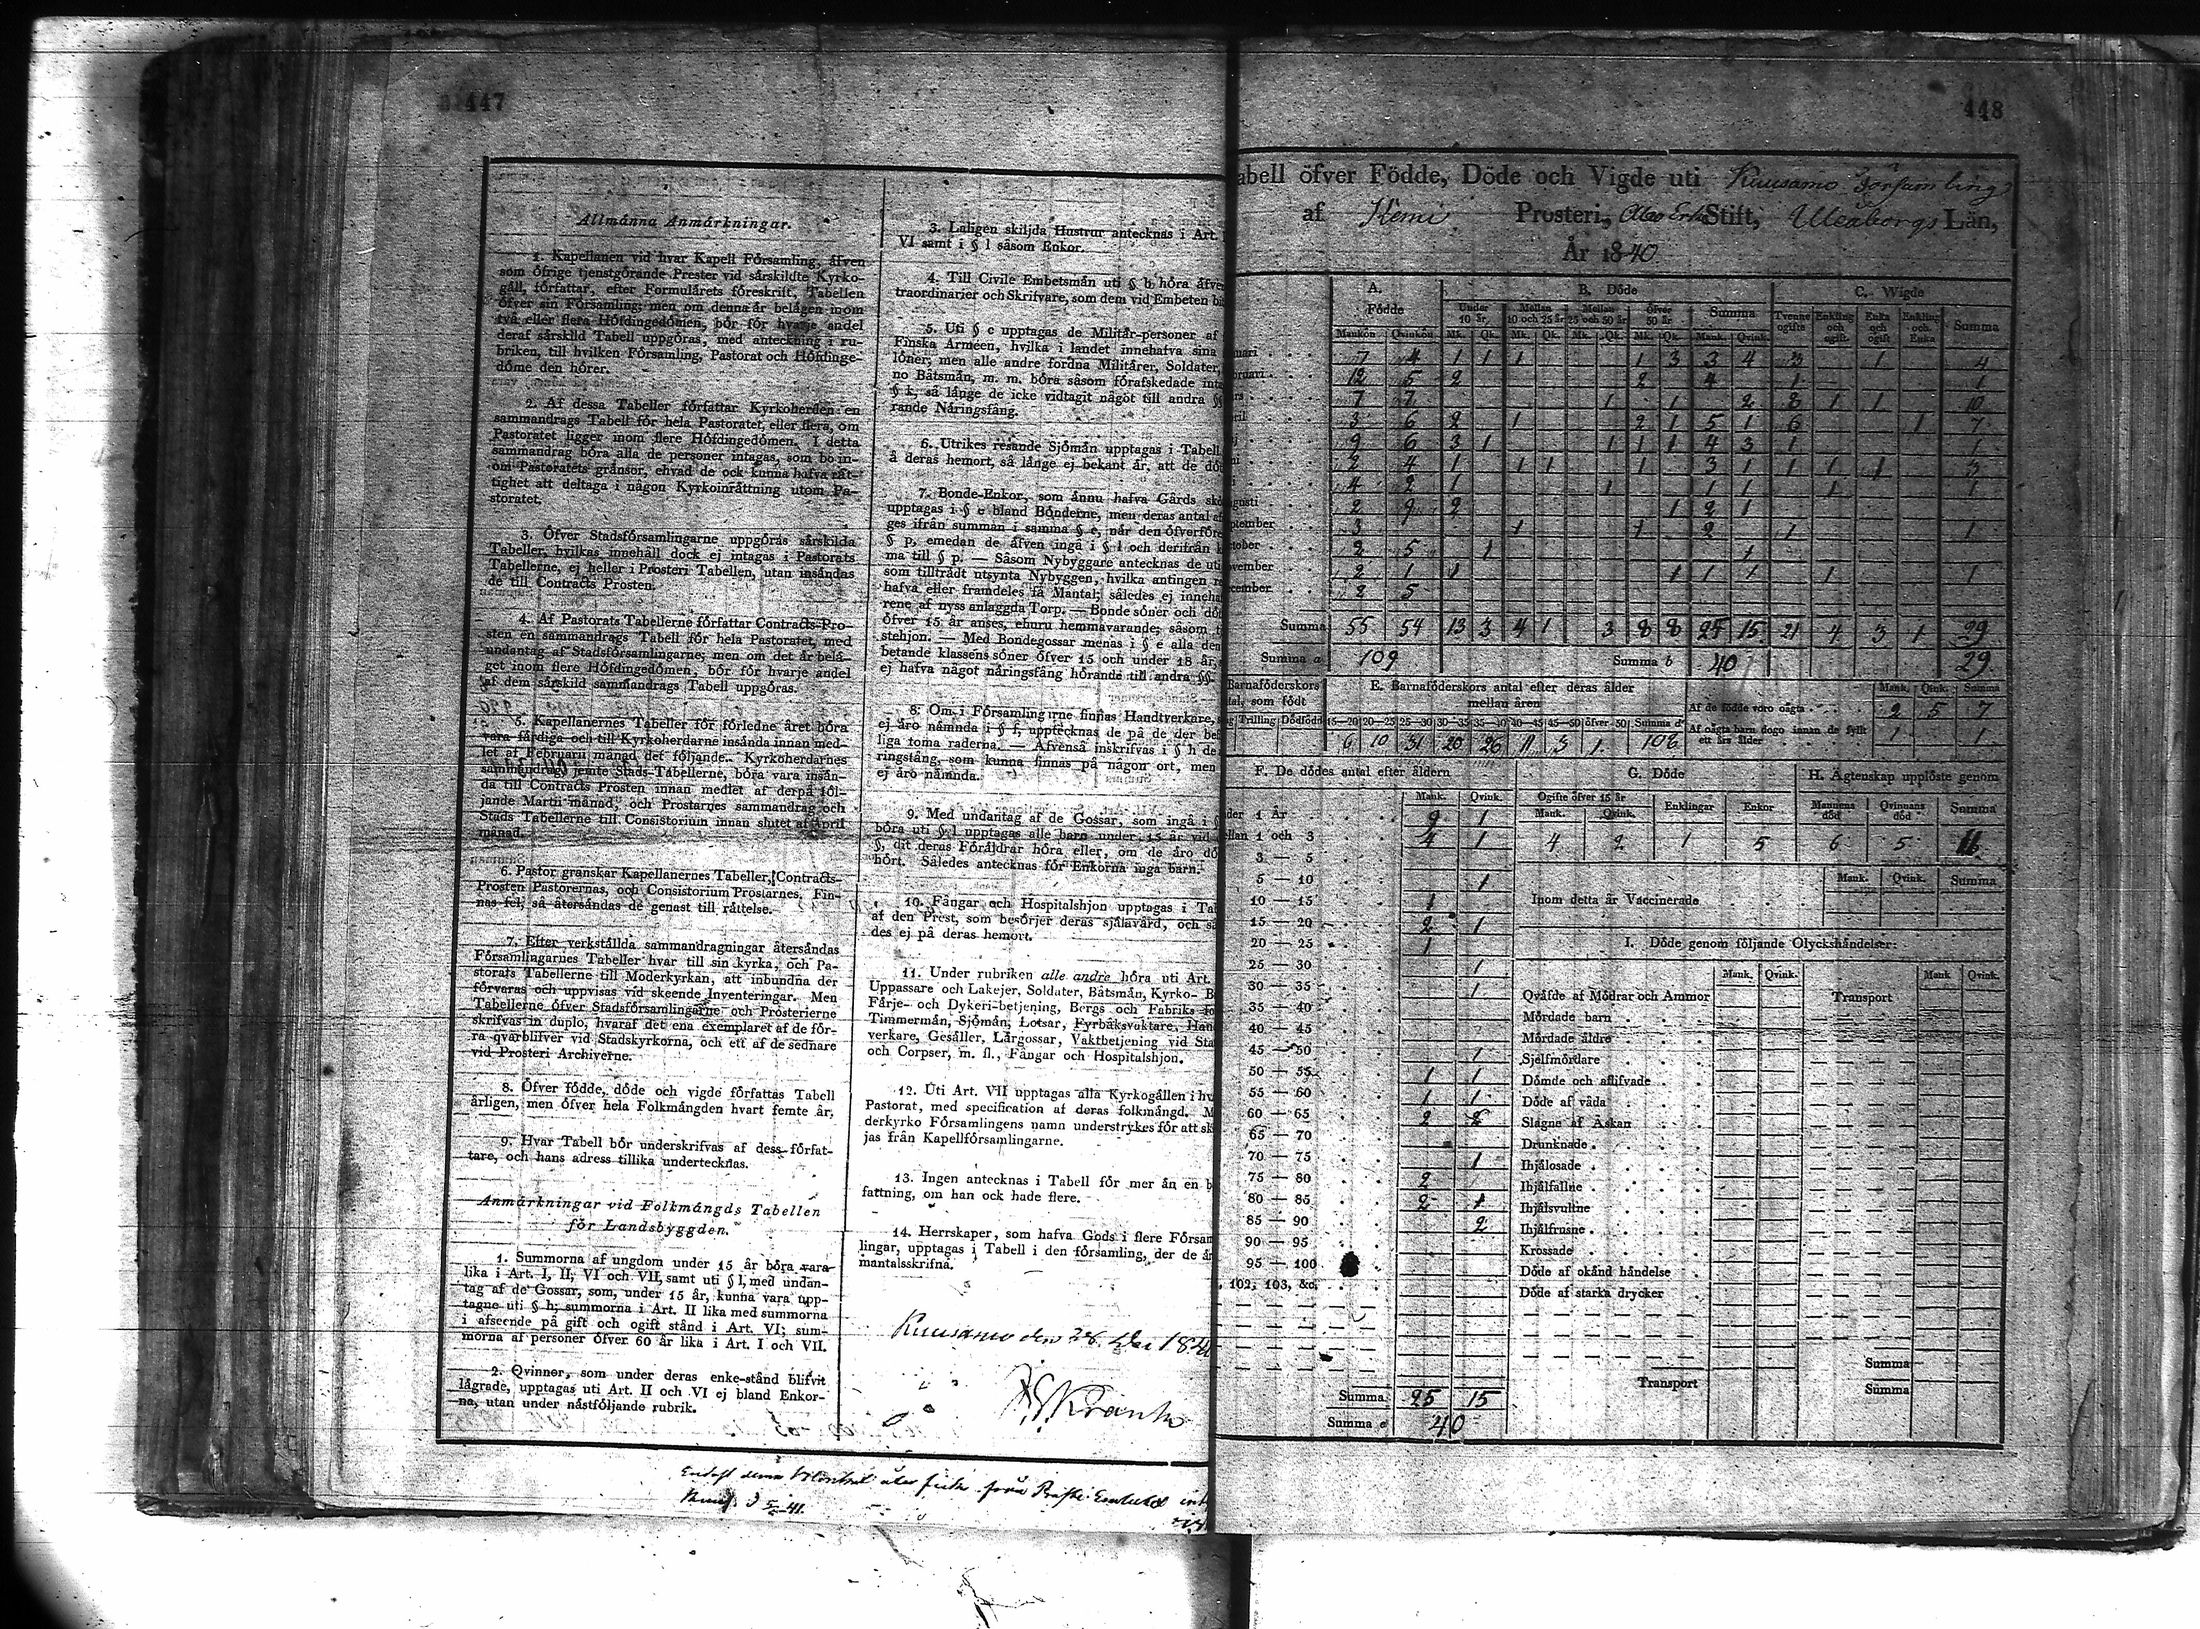 447
Allmånna Anmårkningar.
1. Kapellanen vid hvar Kapell Församling, åfven
som öfrige tjenstgörande Prester vid sårskildte Kyrko-
gåll, författar, efter Formulårets föreskrift, Tabellen
öfver sin Församling; men om denna år belågen inom
två eller flera Höfdingedömen, bör för hvarje andel
deraf sårskild Tabell uppgöras, med anteckning i ru-
briken, till hvilken Församling, Pastorat och Höfdinge-
döme den hörer.
2. Af dessa Tabeller författar Kyrkoherden en
sammandrags Tabell för hela Pastoratet, eller flera, om
Pastoratet ligger inom flere Höfdingedömen. I detta
sammandrag böra alla de personer intagas, som bo in-
om Pastoratets grånsor, ehvad de ock kunna hafva råt-
tighet att deltaga i någon Kyrkoinråttning utom Pa-
storatet.
3. Öfver Stadsförsamlingarne uppgöras sårskilda
Tabeller, hvilkas innehåll dock ej intagas i Pastorats
Tabellerne, ej heller i Prosteri Tabellen, utan insåndas
de till Contracts Prosten.
4. Af Pastorats Tabellerne författar Contracts-Pro-
sten en sammandrags Tabell för hela Pastoratet, med
undantag af Stadsförsamlingarne; men om det år belå-
get inom flere Höfdingedömen, bör för hvarje andel
af dem sårskild sammandrags Tabell uppgöras.
5. Kapellanernes Tabeller för förledne året böra
vara fårdiga och till Kyrkoherdarne insånda innan med-
let af Februarii månad det följande. Kyrkoherdarnes
sammandrag jemte Stads-Tabellerne, böra vara insån-
da till Contracts Prosten innan medlet af derpå föl-
jande Martii månad, och Prostarnes sammandrag och
Stads Tabellerne till Consistorium innan slutet af April
månad.
6. Pastor granskar Kapellanernes Tabeller, Contracts-
Prosten Pastorernas, och Consistorium Prostarnes. Fin-
nas fel, så återsåndas de genast till råttelse.
7. Efter verkstållda sammandragningar återsåndas
Församlingarnes Tabeller hvar till sin kyrka, och Pa-
storats Tabellerne till Moderkyrkan, att inbundna der
förvaras och uppvisas vid skeende Inventeringar. Men
Tabellerne öfver Stadsförsamlingarne och Prosterierne
skrifvas in duplo, hvaraf det ena exemplaret af de för-
ra qvarblifver vid Stadskyrkorna, och ett af de sednare
vid Prosteri Archiverne.
8. Öfver födde, döde och vigde författas Tabell
årligen, men öfver hela Folkmångden hvart femte år.
9. Hvar Tabell bör underskrifvas af dess förfat-
tare, och hans adress tillika undertecknas.
Anmårkningar vid Folkmångds Tabellen
för Landsbyggden.
1. Summorna af ungdom under 15 år böra vara
lika i Art. I, II, VI och VII, samt uti § l, med undan-
tag af de Gossar, som, under 15 år, kunna vara upp-
tagne uti § h; summorna i Art. II lika med summorna
i afseende på gift och ogift stånd i Art. VI; sum-
morna af personer öfver 60 år lika i Art. I och VII.
2. Qvinnor, som under deras enke-stånd blifvit
lågrade, upptagas uti Art. II och VI ej bland Enkor-
na, utan under nåstföljande rubrik.
3. Laligen skiljda Hustrur antecknas i Art.
VI samt i § l såsom Enkor.
4. Till Civile Embetsmån uti § b höra åfve
traordinarier och Skrifvare, som dem vid Embeten bi
5. Uti § c upptagas de Militår-personer af
Finska Arméen, hvilka i landet innehafva sina
löner; men alle andre fordna Militårer, Soldater,
no Båtsmån, m. m. böra såsom förafskedade inta
§ k, så långe de icke vidtagit något till andra §
rande Nåringsfång.
6. Utrikes resande Sjömån upptagas i Tabell
å deras hemort, så långe ej bekant år, att de dö
7. Bonde-Enkor, som ånnu hafva Gårds skö
upptagas i § e bland Bönderne, men deras antal af
ges ifrån summan i samma § e, når den öfverföre
§ p, emedan de åfven ingå i § l och derifrån
ma till § p. — Såsom Nybyggare antecknas de uti
som tilltrådt utsynta Nybyggen, hvilka antingen re
hafva eller framdeles få Mantal; således ej inneha
rene af nyss anlaggda Torp. — Bonde söner och dö
öfver 15 år anses, ehuru hemmavarande, såsom
stehjon. — Med Bondegossar menas i § e alla den
betande klassens söner öfver 15 och under 18 år,
ej hafva något nåringsfång hörande till andra §§.
8. Om i Församlingarne finnas Handtverkare,
ej åro nåmnda i § f, upptecknas de på de der be
liga toma raderna. — Åfvenså inskrifvas i § h de
ringsfång, som kunna finnas på någon ort, men
ej åro nåmnda.
9. Med undantag af de Gossar, som ingå i §
böra uti § l upptagas alle barn under 15 år vid
§, dit deras Föråldrar höra eller, om de åro dö
hört. Således antecknas för Enkorna inga barn.
10. Fångar och Hospitalshjon upptagas i Ta
af den Prest, som besörjer deras sjålavård, och så
des ej på deras hemort.
11. Under rubriken alle andre höra uti Art.
Uppassare och Lakejer, Soldater, Båtsmån, Kyrko- B
Fårje- och Dykeri-betjening, Bergs och Fabriks
Timmermån, Sjömån, Lotsar, Fyrbåksvaktare, Han
verkare, Gesåller, Lårgossar, Vaktbetjening vid Sta
och Corpser, m. fl., Fångar och Hospitalshjon.
12. Uti Art. VII upptagas alla Kyrkogållen i hv
Pastorat, med specification af deras folkmångd. M
derkyrko Församlingens namn understrykes för att sk
jas från Kapellförsamlingarne.
13. Ingen antecknas i Tabell för mer ån en b
fattning, om han ock hade flere.
14. Herrskaper, som hafva Gods i flere Försam
lingar, upptagas i Tabell i den församling, der de år
mantalsskrifna.
Kuusamo den 28
448
abell öfver Födde, Döde och Vigde uti Kuusamo Församling
af Kemi Prosteri, Åbo Erke Stift, Uleåborgs Län,
År 1840
A. Födde B. Döde C. Wigde
Under 10 år, Mellan 10 och 25 år Mellan 25 och 50 år Öfver 50 år Summa Tvenne ogifte Enkling och ogift Enka och ogift Enkling och Enka Summa
Mankön Qvinkön Mk. Qk. Mk. Qk. Mk. Qk. Mk. Qk. Mank. Qvink.
nuari 7 4 1 1 1 1 3 3 4 3 1 4
bruari 12 5 2 2 4 1 1
rs 7 7 1 1 2 8 1 1 10
ril 3 6 2 1 2 1 5 1 6 1 7
j 9 6 3 1 1 1 1 4 3 1 1
ni 2 4 1 1 1 1 3 1 1 1 1 3
i 4 2 1 1 1 1 1 1
gusti 2 9 2 1 2 1
ptember 3 1 1 2 1 1
tober 2 5 1 1
ovember 2 1 1 1 1 1 1 1
cember 2 5
Summa 55 54 13 3 4 1 3 8 8 25 15 21 4 3 1 29
Summa a 109 Summa b 40 29.
Barnaföderskors
tal, som födt
Trilling Dödfödd
E. Barnaföderskors antal efter deras ålder
mellan åren
15—20 20—25 25—30 30—35 35—40 40—45 45—50 öfver 50 Summa d
6 10 31 20 26 11 3 1 108
Mank. Qink. Summa
Af de födde voro oågta 2 5 7
Af oågta barn dogo innan de fyllt
ett års ålder 1 1
F. De dödes antal efter åldern
Mank. Qvink.
nder 1 År 9 1
ellan 1 och 3 4 1
3 — 5
5 — 10 1
10 — 15 1
15 — 20 2 1
20 — 25 1
25 — 30 1
30 — 35 1
35 — 40
40 — 45
45 — 50 1
50 — 55 1 1
55 — 60 1 1
60 — 65 2 2
65 — 70
70 — 75 1
75 — 80 2
80 — 85 2 1
85 — 90 2
90 — 95
95 — 100
102, 103, &c.
Summa 25 15
Summa e 40
G. Döde
Ogifte öfver 15 år Enklingar Enkor
Mank. Qvink.
4 2 1 5
H. Ågtenskap upplöste genom
Mannens död Qvinnans död Summa
6 5 11
Mank. Qvink. Summa
Inom detta år Vaccinerade
I. Döde genom följande Olyckshåndelser:
Mank. Qvink. Mank Qvink.
Qvåfde af Mödrar och Ammor Transport
Mördade barn
Mördade åldre
Sjelfmördare
Dömde och aflifvade
Döde af våda
Slagne af Åskan
Drunknade
Ihjålosade
Ihjålfallne
Ihjålsvultne
Ihjålfrusne
Krossade
Döde af okånd håndelse
Döde af starka drycker
Summa
Transport Summa